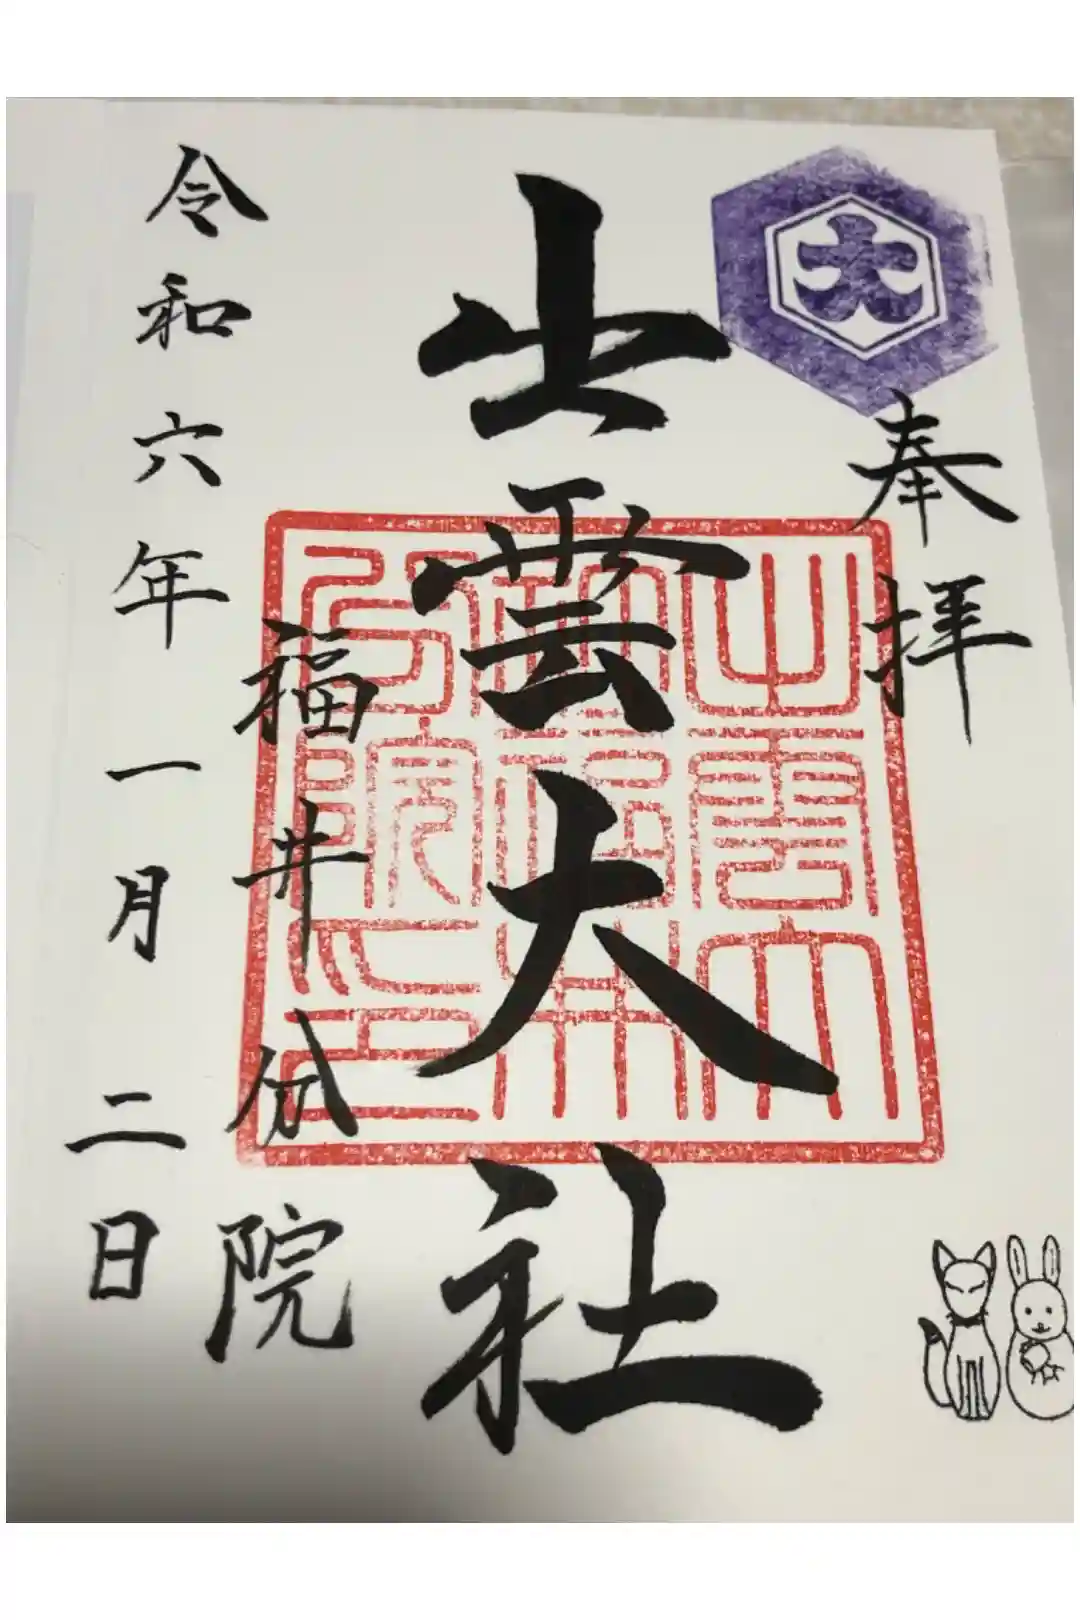 奉拝
大
出雲大社
出雲大
社福井
分院之印
福井分院
令和六年一月二日